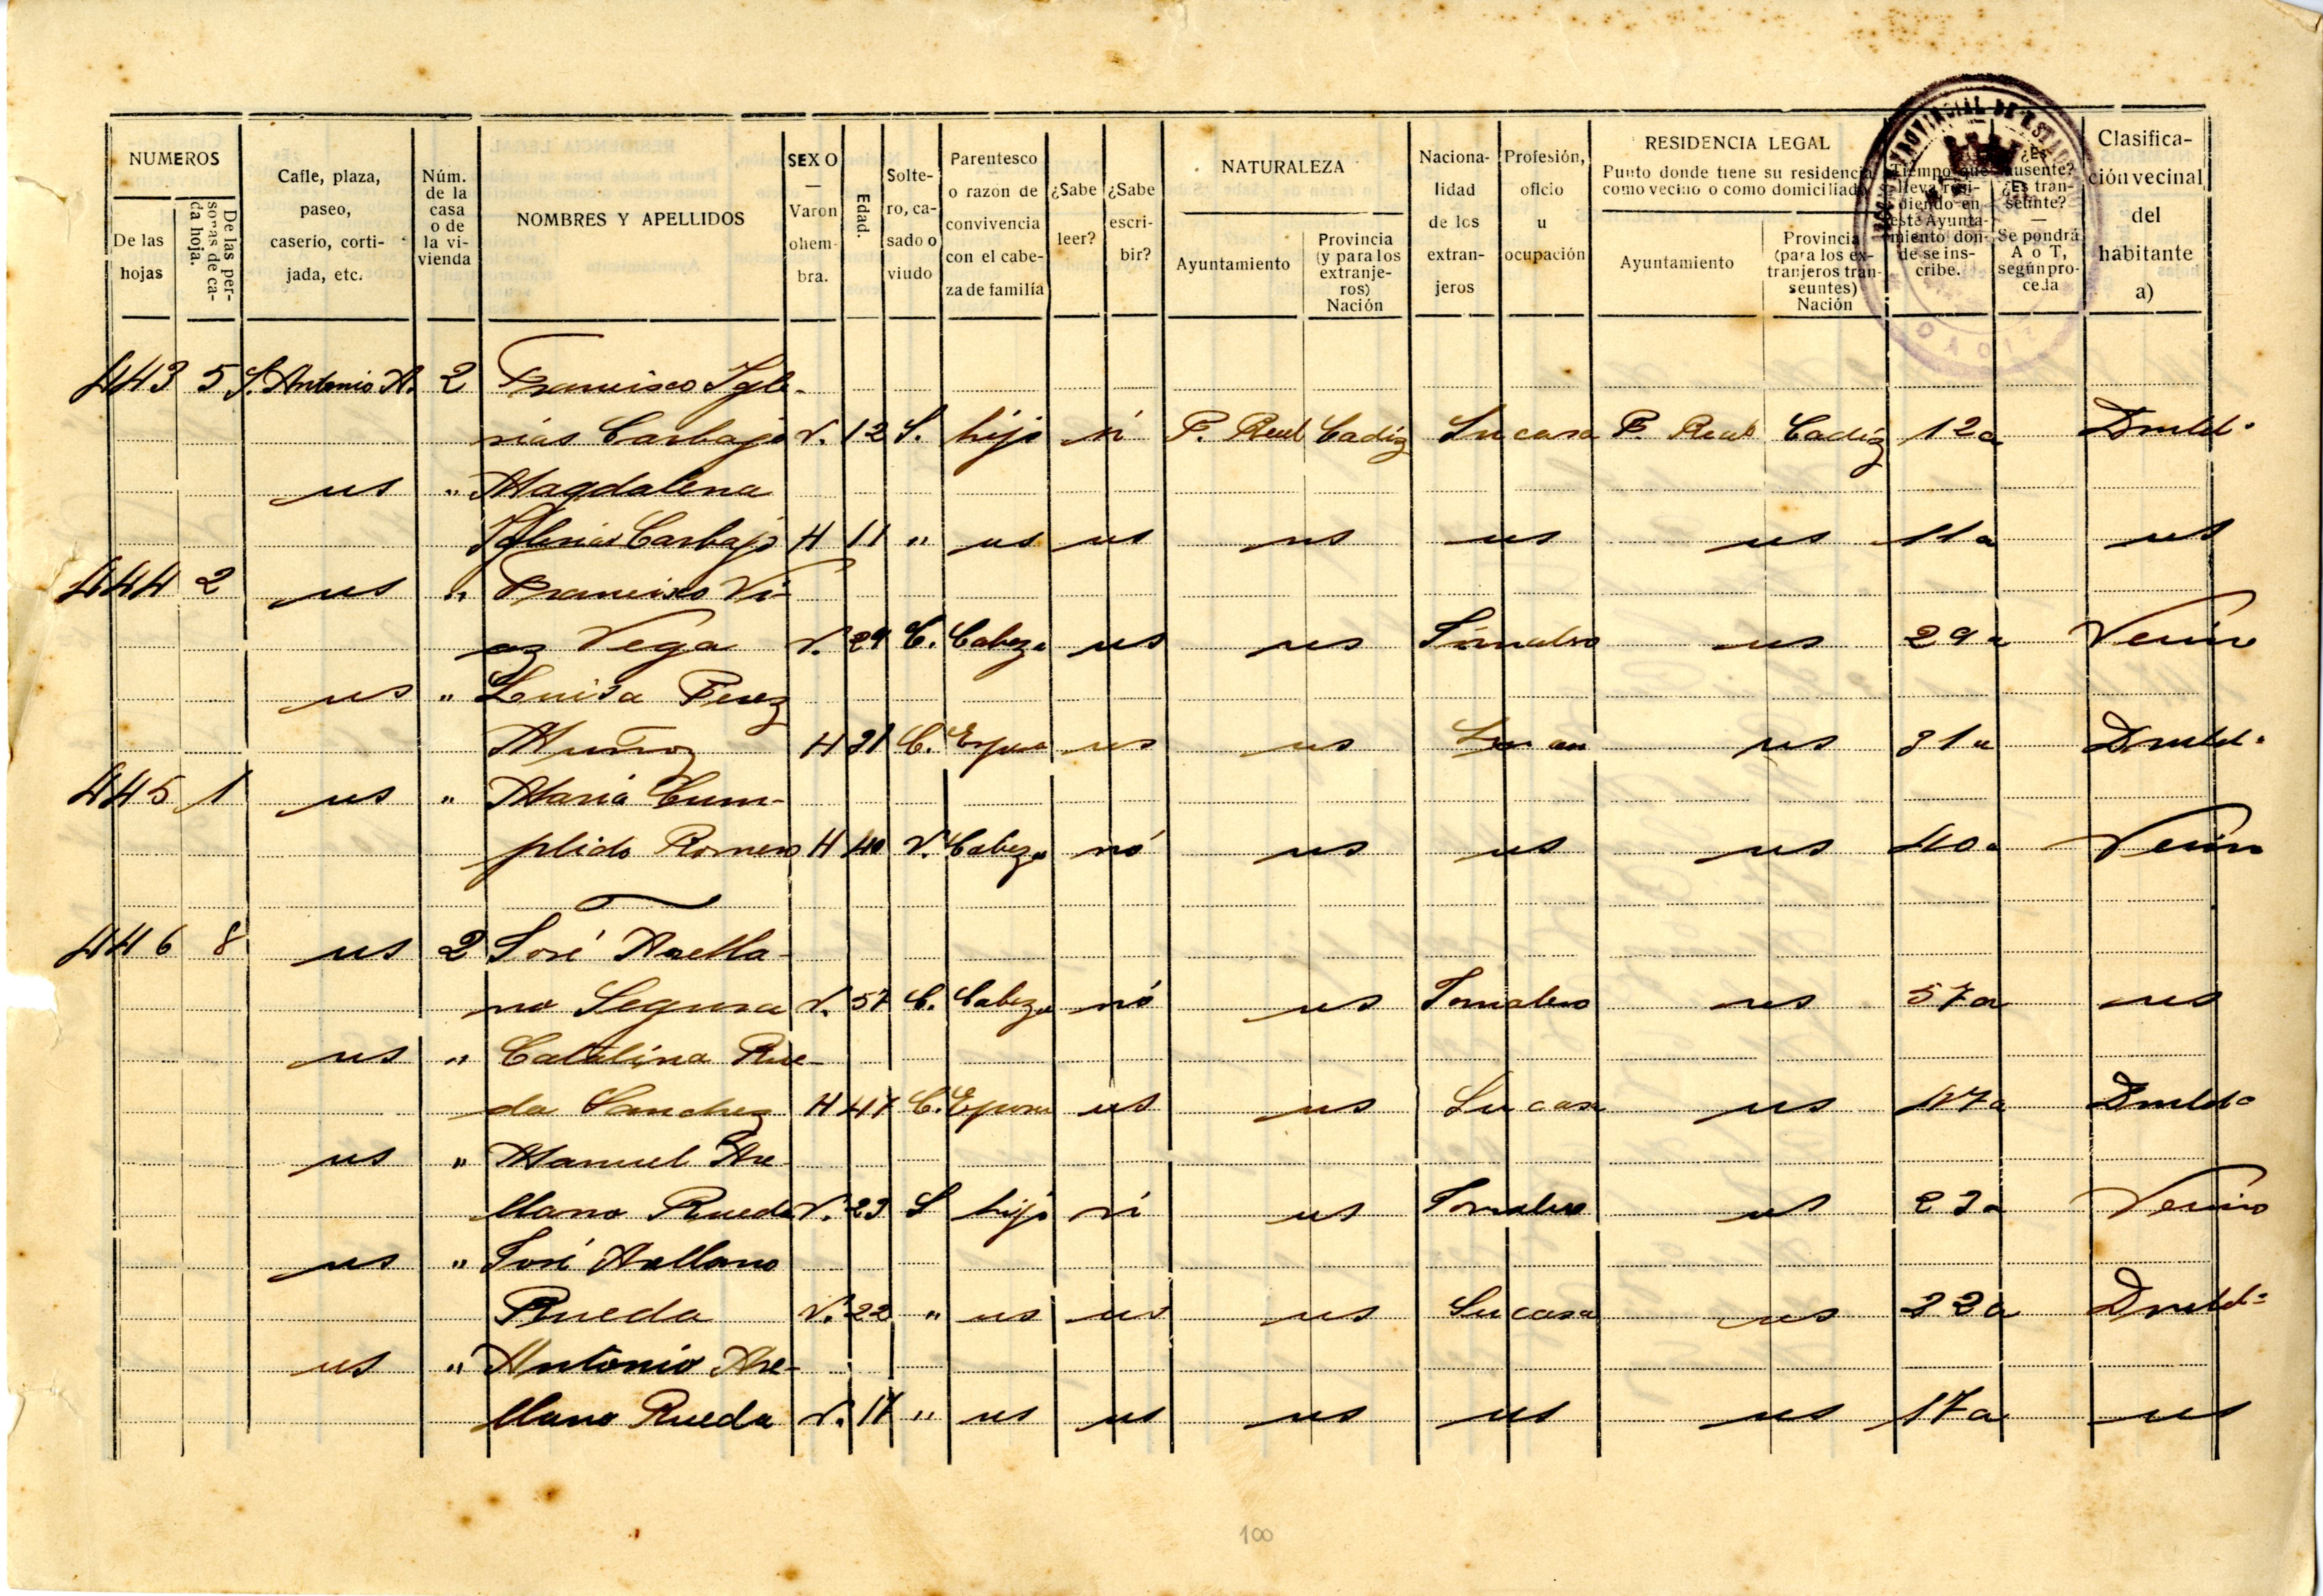 NUMEROS
De las hojas
De las personas de cada hoja.
Calle, plaza, paseo, caserío, cortijada, etc.
Núm. de la casa o de la vivienda
NOMBRES Y APELLIDOS
SEXO — Varon o hembra.
Edad.
Soltero, casado o viudo
Parentesco o razon de convivencia con el cabeza de familia
¿Sabe leer?
¿Sabe escribir?
NATURALEZA
Ayuntamiento
Provincia (y para los extranjeros) Nación
Nacionalidad de los extranjeros
Profesión, oficio u ocupación
RESIDENCIA LEGAL
Punto donde tiene su residencia como vecino o como domiciliado
Ayuntamiento
Provincia (para los extranjeros transeuntes) Nación
Tiempo que lleva residiendo en este Ayuntamiento donde se inscribe.
¿Es ausente? ¿Es transeunte? — Se pondrá A o T, según proceda
Clasificación vecinal del habitante a)
PROVINCIAL DE ESTAD
443 5 S. Antonio A. 2 Francisco Igle-
sias Carbajo V. 12 S. hijo si P. Real Cadiz Su casa P. Real Cadiz 12a Dmld.
us " Magdalena
Iglesias Carbajo H 11 " us us us us us 11a us
444 2 us " Francisco Vi-
az Vega V. 29 C. Cabeza us us Jornalero us 29a Vecino
us " Luisa Perez
Muñoz H 31 C. Esposa us us us 31a Dmld.
445 1 us " Maria Cum-
plido Romero H 40 V. Cabeza nó us us us 40a Vecino
446 8 us 2 José Arella-
no Segura V. 57 C. Cabeza nó us Jornalero us 57a us
us " Catalina Rue-
da Sanchez H 47 C. Esposa us us Su casa us 47a Dmld.
us " Manuel Are-
llano Rueda V. 23 S hijo si us Jornalero us 23a Vecino
us " José Arellano
Rueda V. 22 " us us us Su casa us 22a Dmld.
us " Antonio Are-
llano Rueda V. 17 " us us us us us 17a us
100